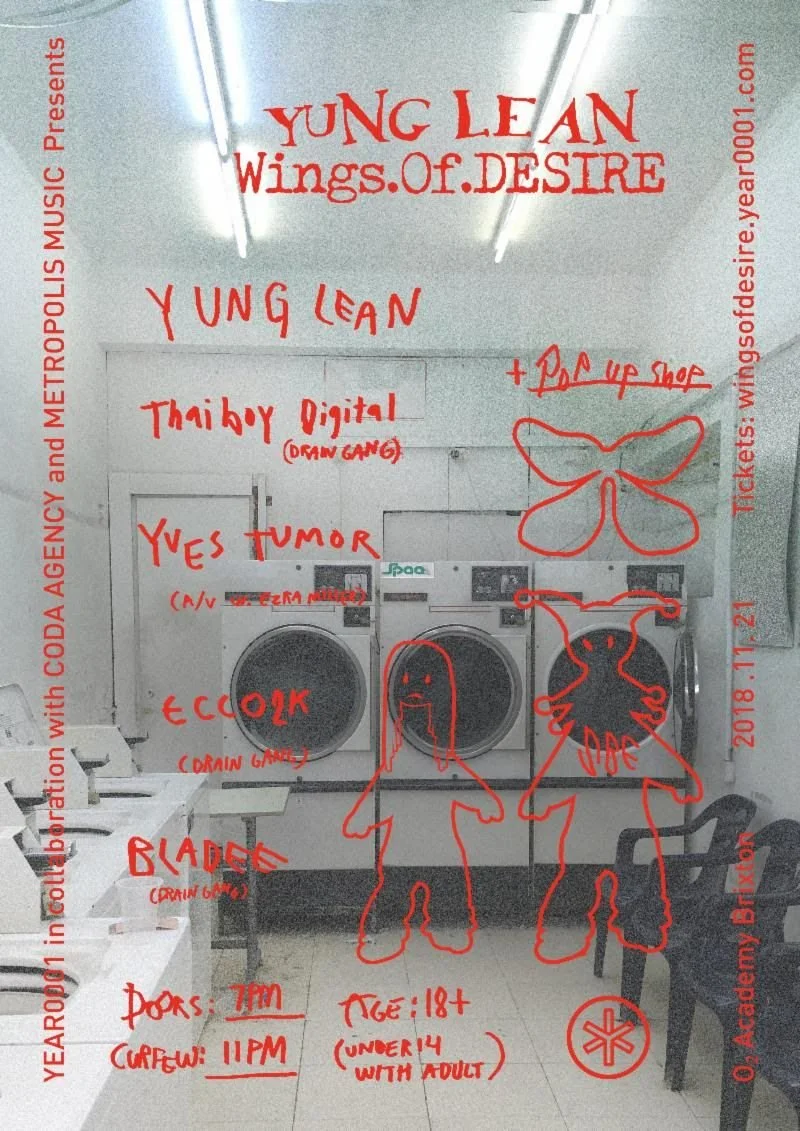 YUNG LEAN
Wings.Of.DESIRE
YEAR0001 in collaboration with CODA AGENCY and METROPOLIS MUSIC Presents
YUNG LEAN
+ POP UP SHOP
Thaiboy Digital
(DRAIN GANG)
YVES TUMOR
Spaa
(A/V w. EZRA MILLER)
ECCO2K
(DRAIN GANG)
BLADEE
(DRAIN GANG)
DOORS: 7PM
AGE: 18+
CURFEW: 11PM
(UNDER 14
WITH ADULT)
O₂ Academy Brixton
2018.11.21
Tickets: wingsofdesire.year0001.com